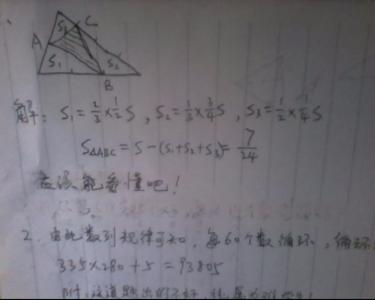 S₃ C
A
S₁ S₂
B
解: S₁=2/3×1/2S, S₂=1/3×3/4S, S₃=1/2×1/4S
S△ABC=S-(S₁+S₂+S₃)=7/24
应该能看懂吧!
2. 由此数列规律可知, 每60个数循环, 循环
335×280+5=93805